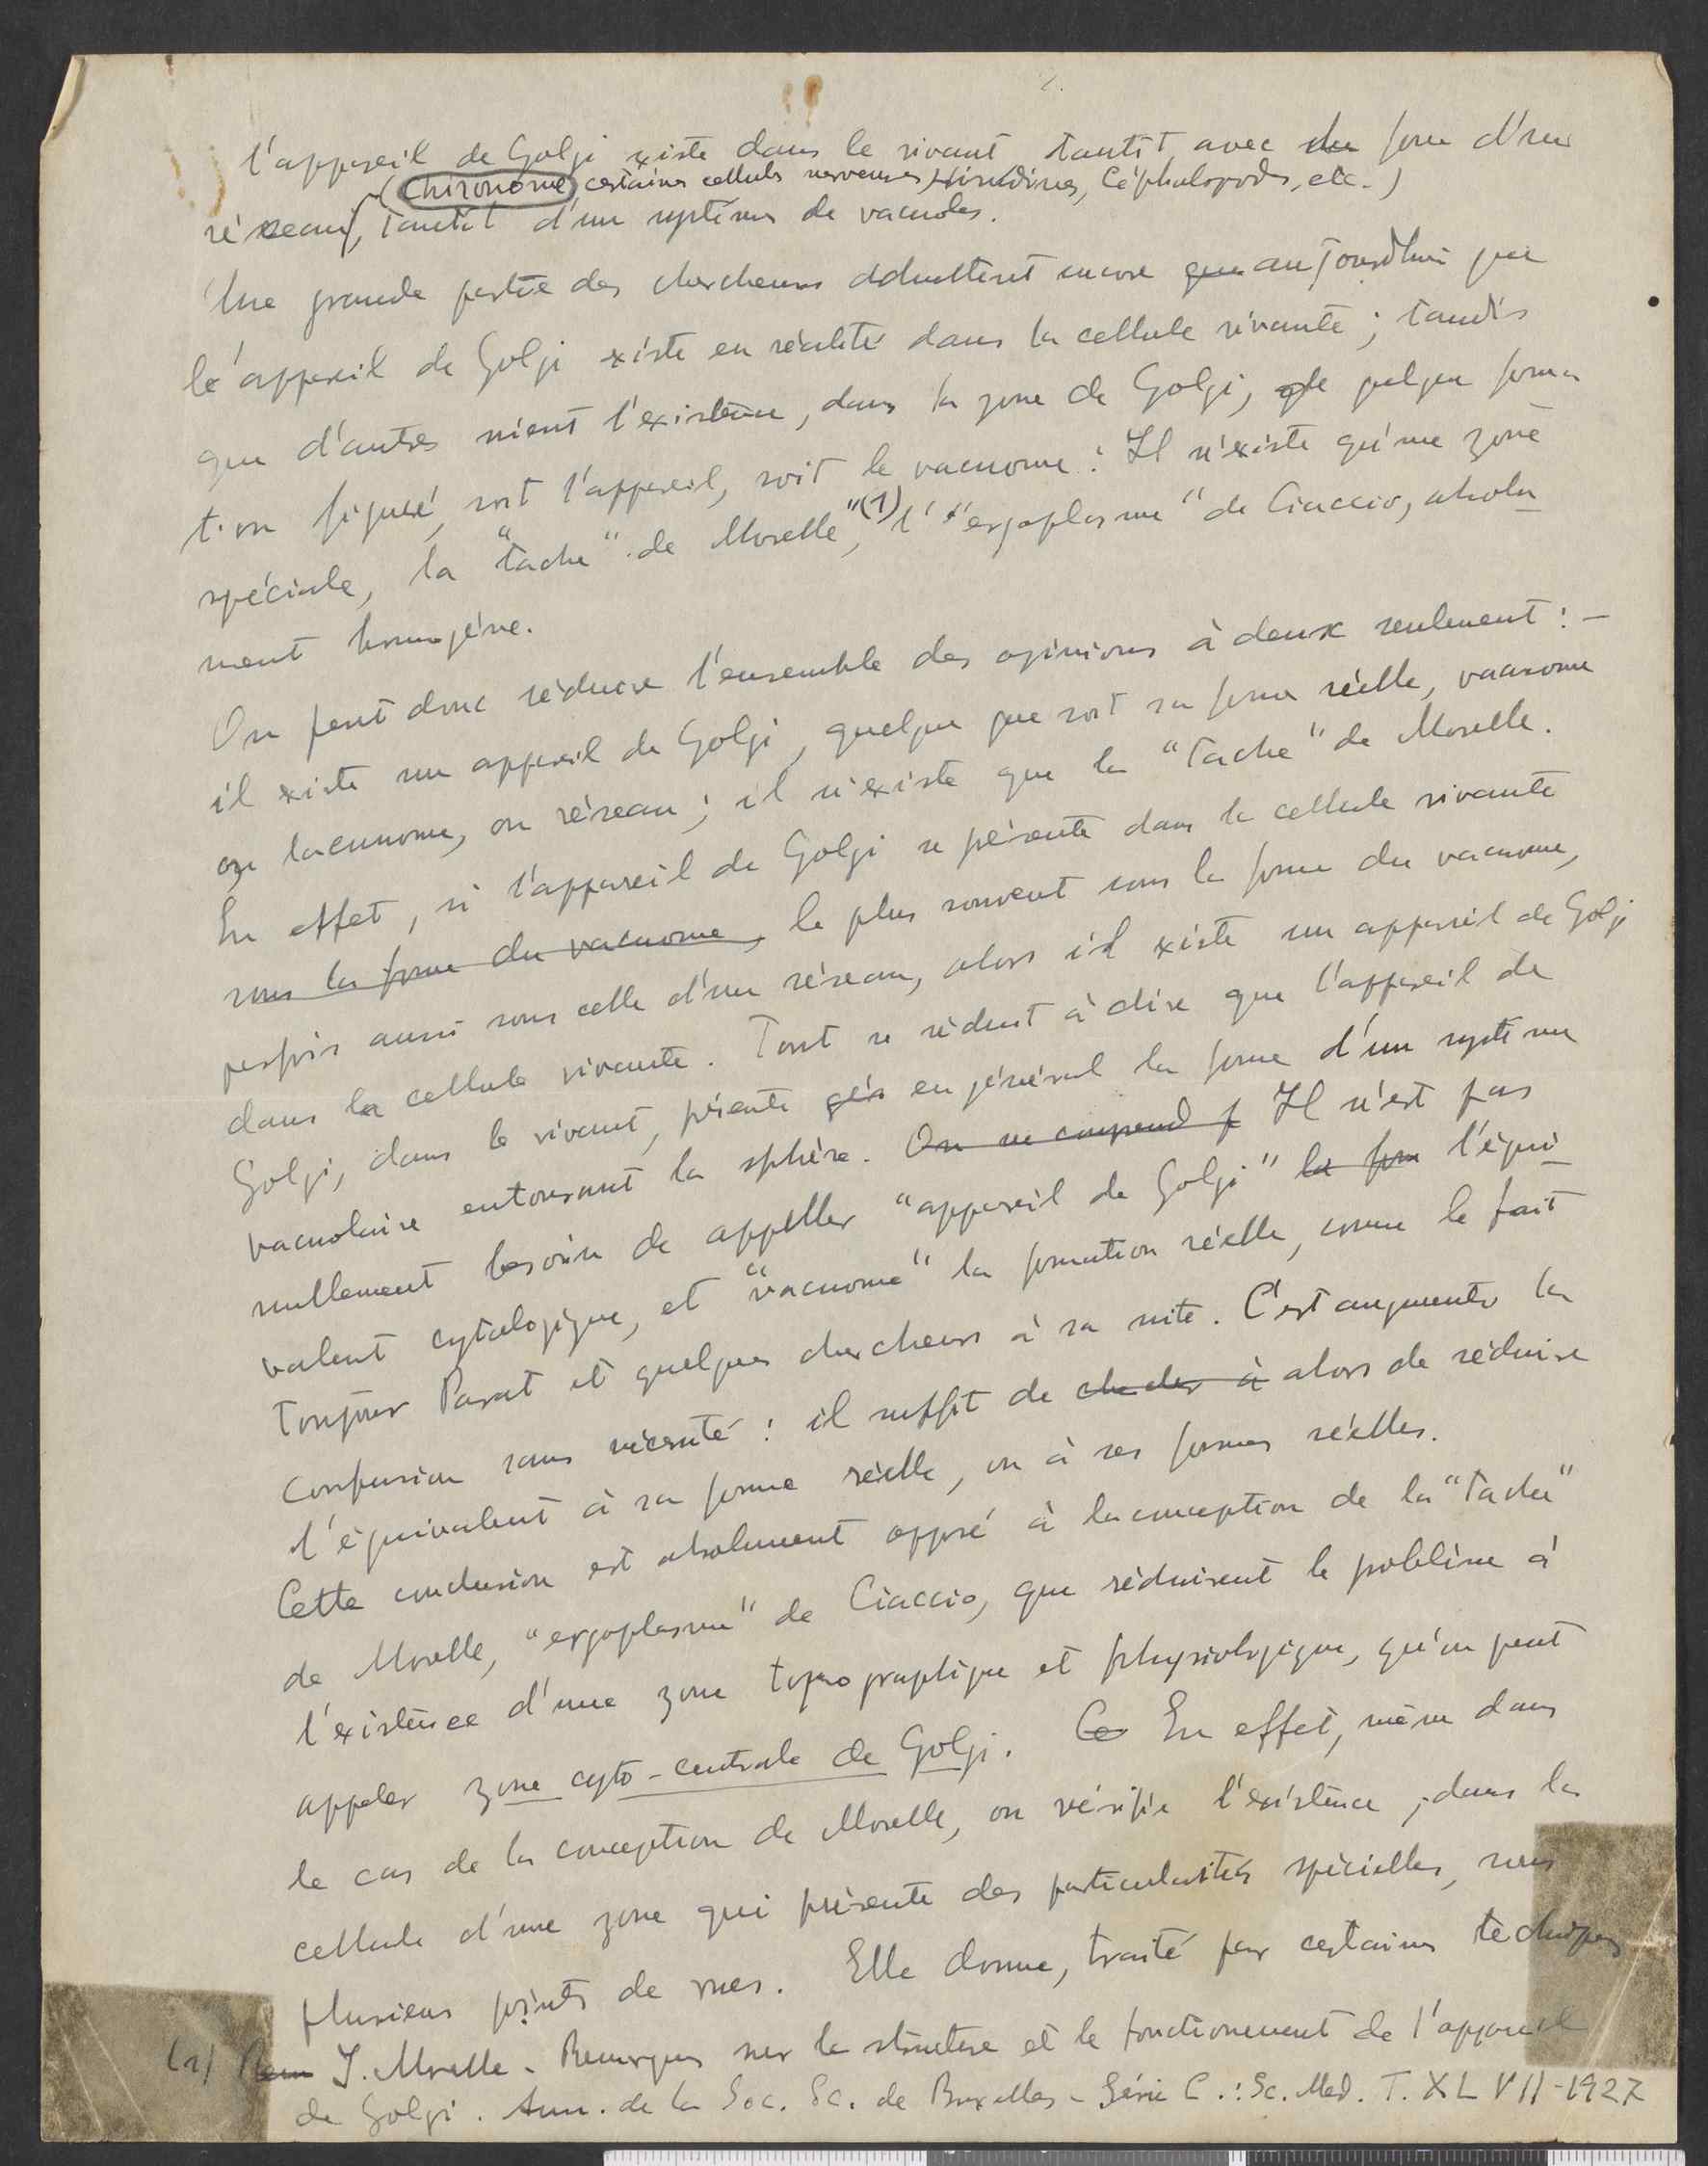 2.
l'appareil de Golgi existe dans le vivant tantôt avec du forme d'un
(Chironome, certaines cellules nerveuses, Hirudinés, Céphalopodes, etc.)
réseau, tantôt d'un système de vacuoles.
Une grande partie des chercheurs admettent encore que aujourd'hui que
le'appareil de Golgi existe en réalité dans la cellule vivante; tandis
que d'autres nient l'existence, dans la zone de Golgi, de quelque forma
tion figuré, soit l'appareil, soit le vacuome: Il n'existe qu'une zone
spéciale, la "tache" de Morelle", (1) l'"ergoplasme" de Ciaccio, absolu-
ment homogène.
On peut donc réduire l'ensemble des opinions à deux seulement: -
il existe un appareil de Golgi, quelque que soit sa forme réelle, vacuome
ou lacunome, ou réseau; il n'existe que la "tache" de Morelle.
En effet, si l'appareil de Golgi se présente dans la cellule vivante
sous la forme du vacuome, le plus souvent sous la forme du vacuome,
parfois aussi sous celle d'un réseau, alors il existe un appareil de Golgi
dans la cellule vivante. Tout se réduit à dire que l'appareil de
Golgi, dans le vivant, présente gén en général la forme d'un système
vacuolaire entourant la sphère. On ne comprend p Il n'est pas
nullement besoin de appeller "appareil de Golgi" la for l'équi-
valent cytologique, et "vacuome" la formation réelle, comme le fait
toujour Parat et quelques chercheurs à sa suite. C'est augmenter la
confusion sans nécesité: il suffit de alors de réduire
l'équivalent à sa forme réelle, ou à ses formes réelles.
Cette conclusion est absolument opposé à la conception de la "tache"
de Morelle, "ergoplasme" de Ciaccio, que réduisent le problème à
l'existence d'une zone topographique et physiologique, qu'on peut
appeler zone cyto-centrale de Golgi. Ce En effet, même dans
le cas de la conception de Morelle, on vérifie l'existence, dans la
cellule d'une zone qui présente des particularités spécielles, sous
plusieus points de vues. Elle donne, traité par certaines techniques
(1) Rem J. Morelle - Remarques sur la structure et le fonctionement de l'appareil
de Golgi. Ann. de la Soc. Sc. de Bruxelles - Série C.: Sc. Med. T. XLVII - 1927